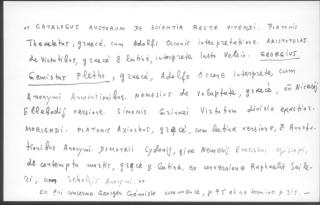 " CATALOGUS AUCTORUM DE SCIENTIA RECTE VIVENDI. Platonis
Theaetetus, graecè, cum Adolfi Occonis interpretatione. ARISTOTELES
de Virtutibus, graecè & latinè, interprete Iusto Velsio. GEORGIUS
Gemistus Pletho, graecè, Adolfo Occone interprete, cum
Anonymi Annotationibus. NEMESIUS de Voluptate, graecè, cum Nicasij
Ellebodij versione. SIMONIS Grinaei Vistutum divisio exactior.
MORIENDI. PLATONIS Axiochus, graecè, cum latina versione, & Annota-
tionibus Anonymi. DEMETRII Cydonij, sive Nemesij Emeseni episcopi,
de contemptu mortis, graecè & latinè, ex conversione Raphaelis Seile-
ri, cum Scholijs Anonymi. "
Ce qui concerne Georges Gémiste commence, p 95 et se termine p 215. -